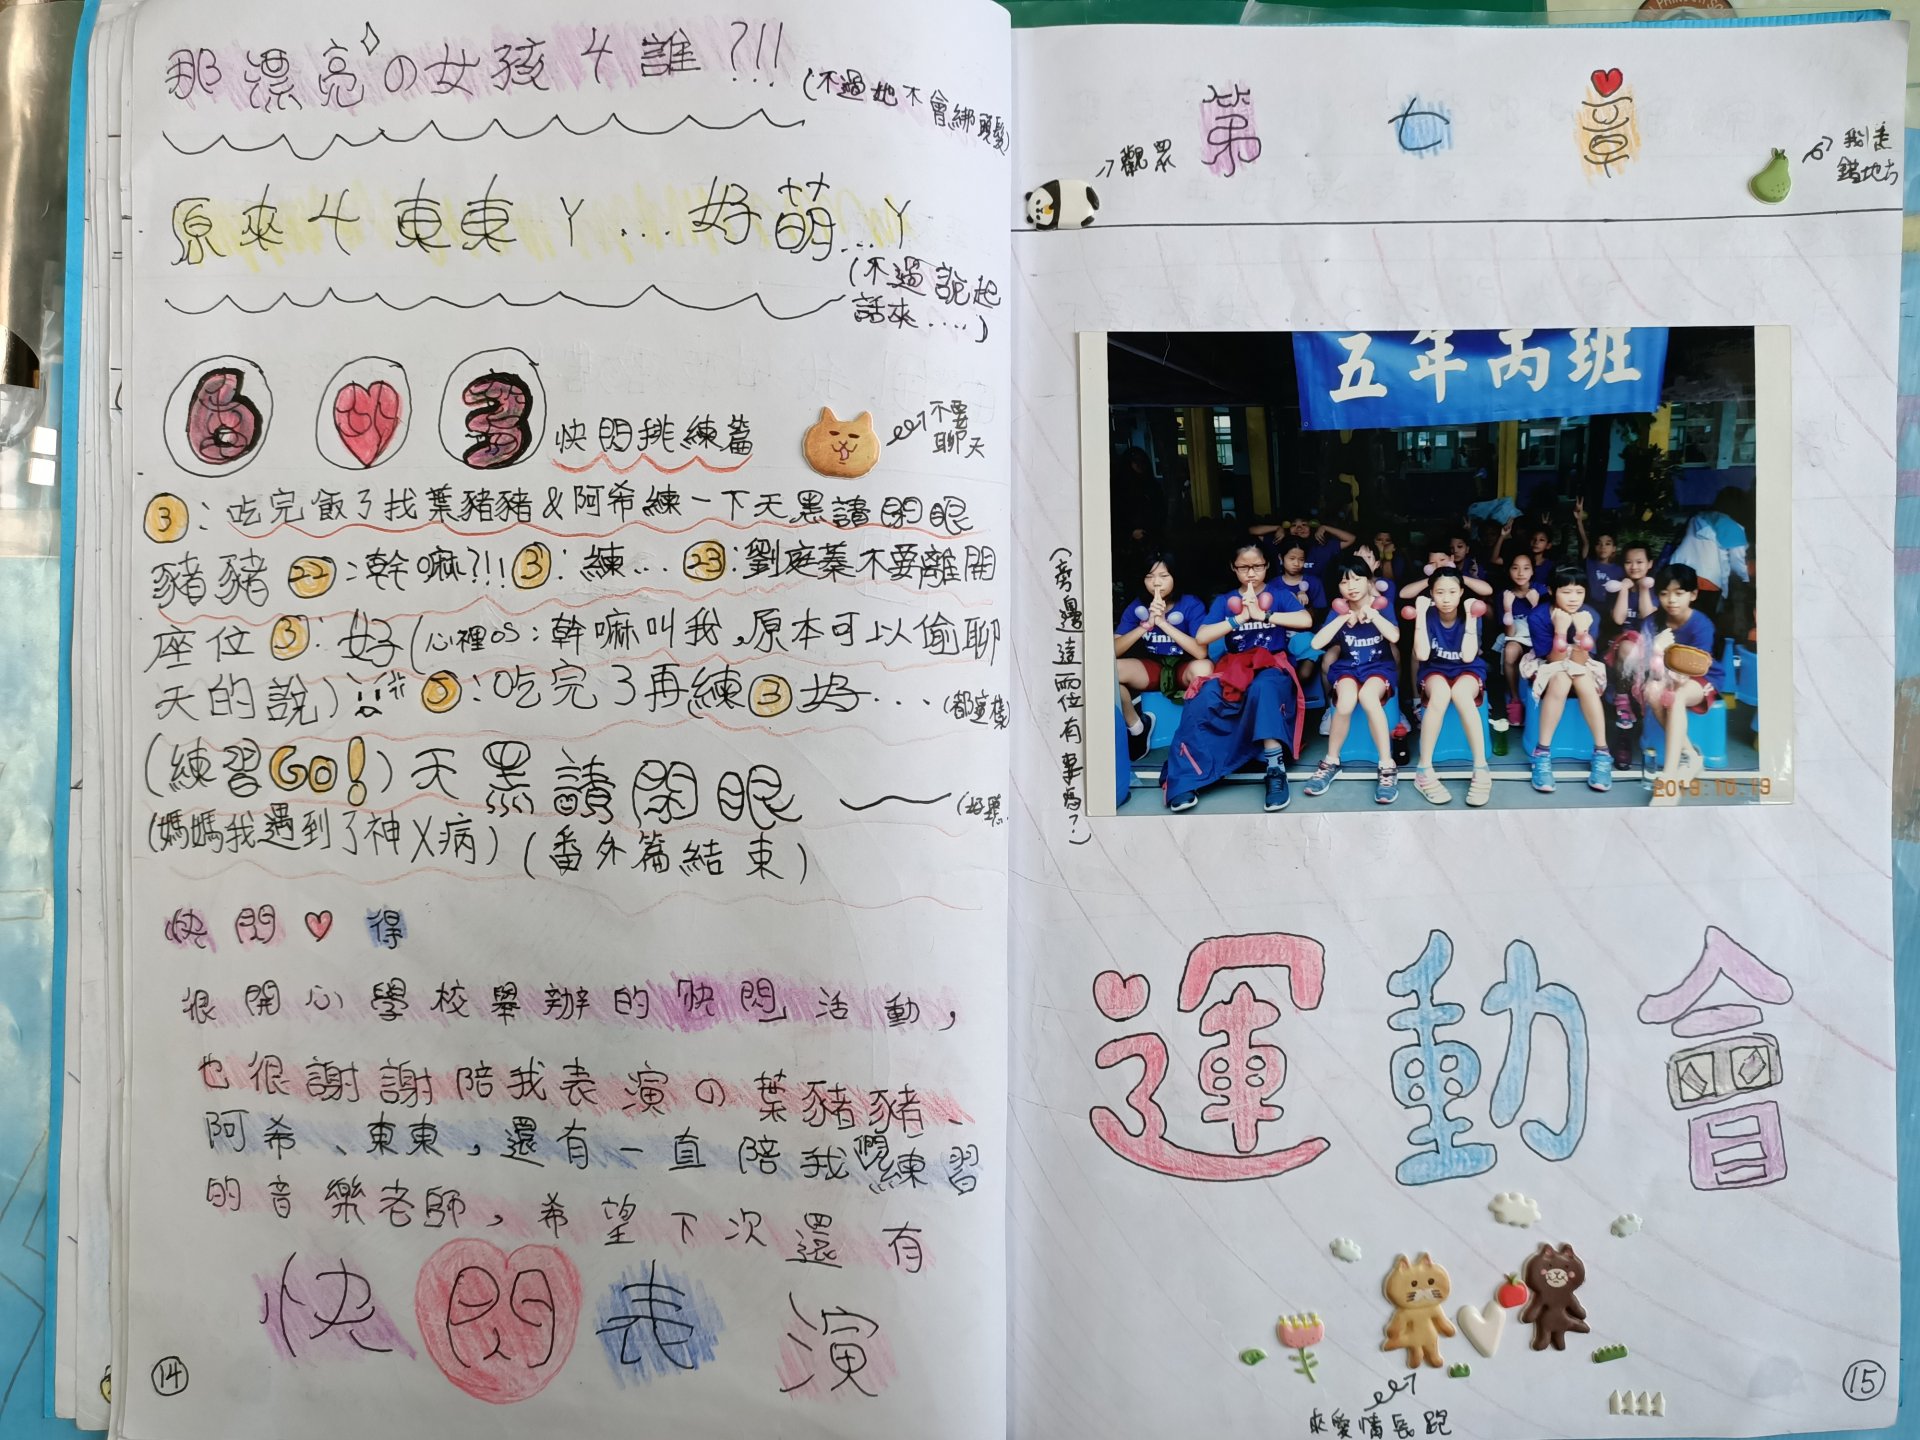 那漂亮の女孩ㄐ誰?!!
(不過她不會綁頭髮)
原來ㄐ東東ㄚ...好萌...ㄚ
(不過說起
話來....)
6 3 快閃排練篇
不要
聊天
③:吃完飯了找葉豬豬&阿希練一下天黑請閉眼
豬豬㉒:幹嘛?!!③:練...㉓:劉庭蓁不要離開
座位③:好(心裡OS:幹嘛叫我,原本可以偷聊
天的說)⑤:吃完了再練③好...(都這樣)
(練習GO!)天黑請閉眼
(媽媽我遇到了神ㄨ病)(番外篇結束)
快閃♥得
很開心學校舉辦的「快閃」活動,
也很謝謝陪我表演の葉豬豬、
阿希、東東,還有一直陪我們練習
的音樂老師,希望下次還有
快閃表演
14
第七章
觀眾
我走
錯地方
五年丙班
2019.10.19
(旁邊這兩位有事嗎?)
運動會
來愛情長跑
15